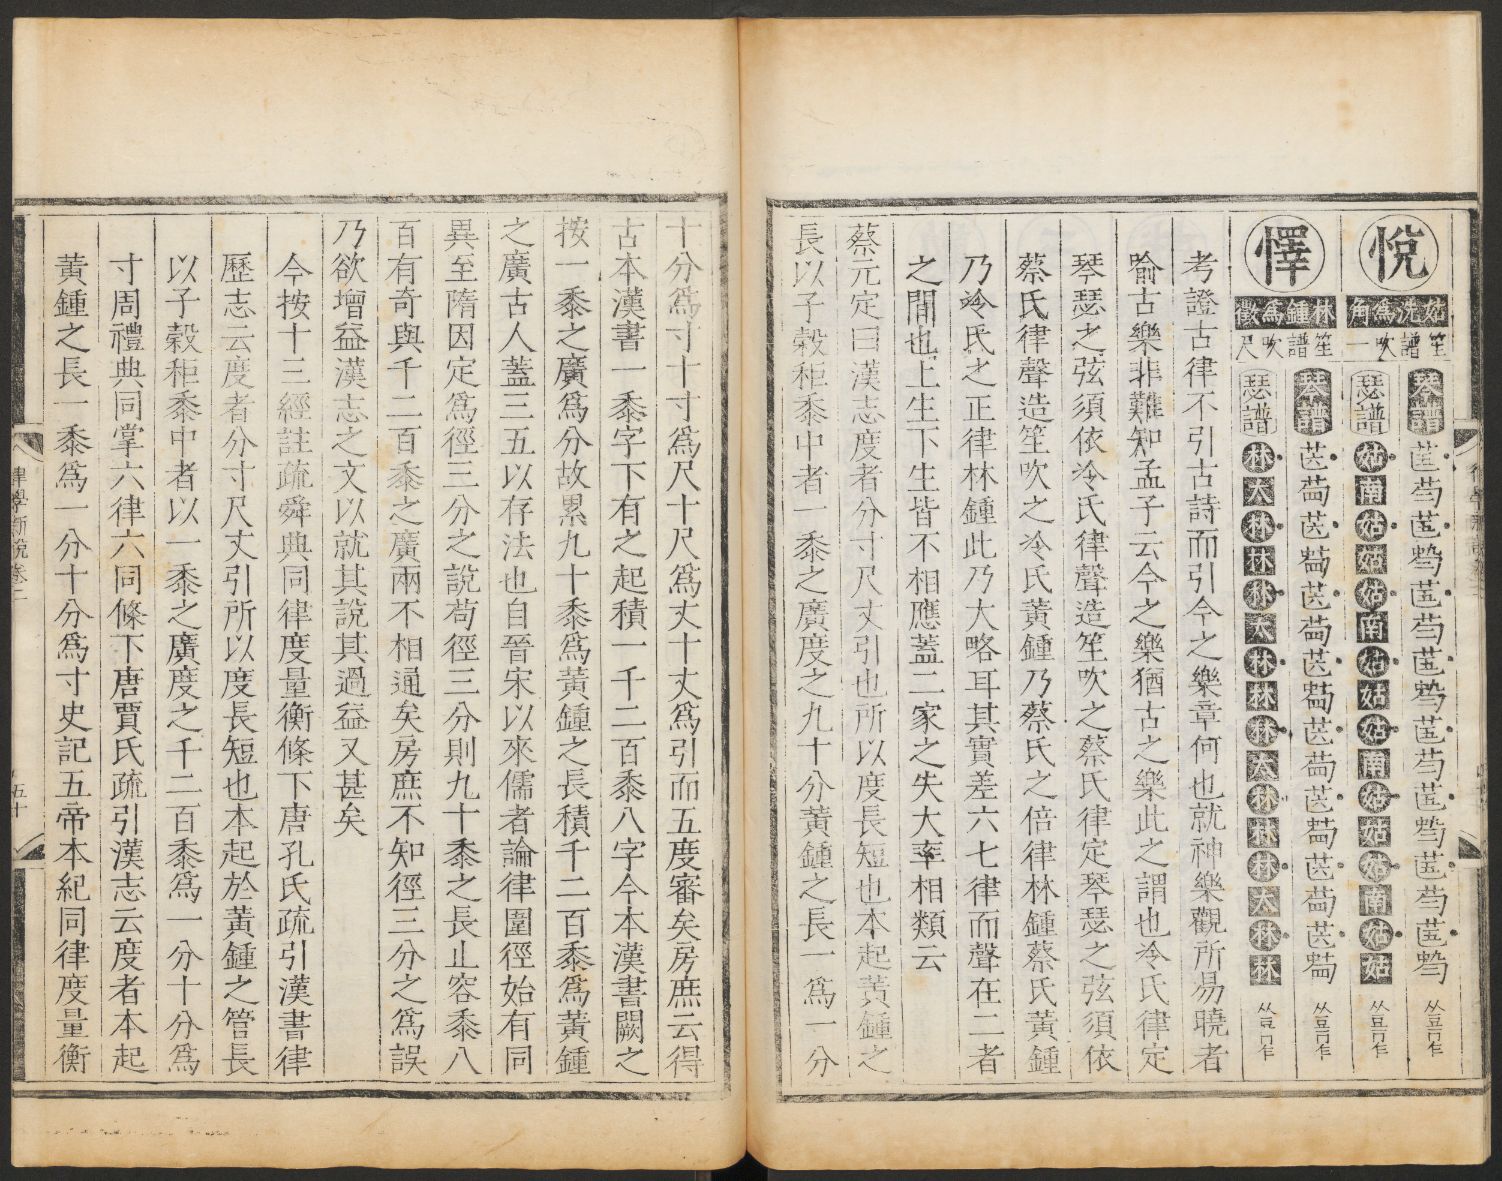 悅
姑洗爲角
笙譜吹一
琴譜
瑟譜
姑南姑姑姑南姑姑姑南姑姑姑南姑姑
懌
林鍾爲徵
笙譜吹尺
琴譜
瑟譜
林太林林林太林林林太林林林太林林
考證古律不引古詩而引今之樂章何也就神樂觀所易曉者
喻古樂非難知孟子云今之樂猶古之樂此之謂也冷氏律定
琴瑟之弦須依冷氏律聲造笙吹之蔡氏律定琴瑟之弦須依
蔡氏律聲造笙吹之冷氏黃鍾乃蔡氏之倍律林鍾蔡氏黃鍾
乃冷氏之正律林鍾此乃大略耳其實差六七律而聲在二者
之間也上生下生皆不相應蓋二家之失大率相類云
蔡元定曰漢志度者分寸尺丈引也所以度長短也本起黃鍾之
長以子穀秬黍中者一黍之廣度之九十分黃鍾之長一爲一分
十分爲寸十寸爲尺十尺爲丈十丈爲引而五度審矣房庶云得
古本漢書一黍字下有之起積一千二百黍八字今本漢書闕之
按一黍之廣爲分故累九十黍爲黃鍾之長積千二百黍爲黃鍾
之廣古人蓋三五以存法也自晉宋以來儒者論律圍徑始有同
異至隋因定爲徑三分之說苟徑三分則九十黍之長止容黍八
百有奇與千二百黍之廣兩不相通矣房庶不知徑三分之爲誤
乃欲增益漢志之文以就其說其過益又甚矣
今按十三經註疏舜典同律度量衡條下唐孔氏疏引漢書律
歷志云度者分寸尺丈引所以度長短也本起於黃鍾之管長
以子穀秬黍中者以一黍之廣度之千二百黍爲一分十分爲
寸周禮典同掌六律六同條下唐賈氏疏引漢志云度者本起
黃鍾之長一黍爲一分十分爲寸史記五帝本紀同律度量衡
律學新說卷二
五十